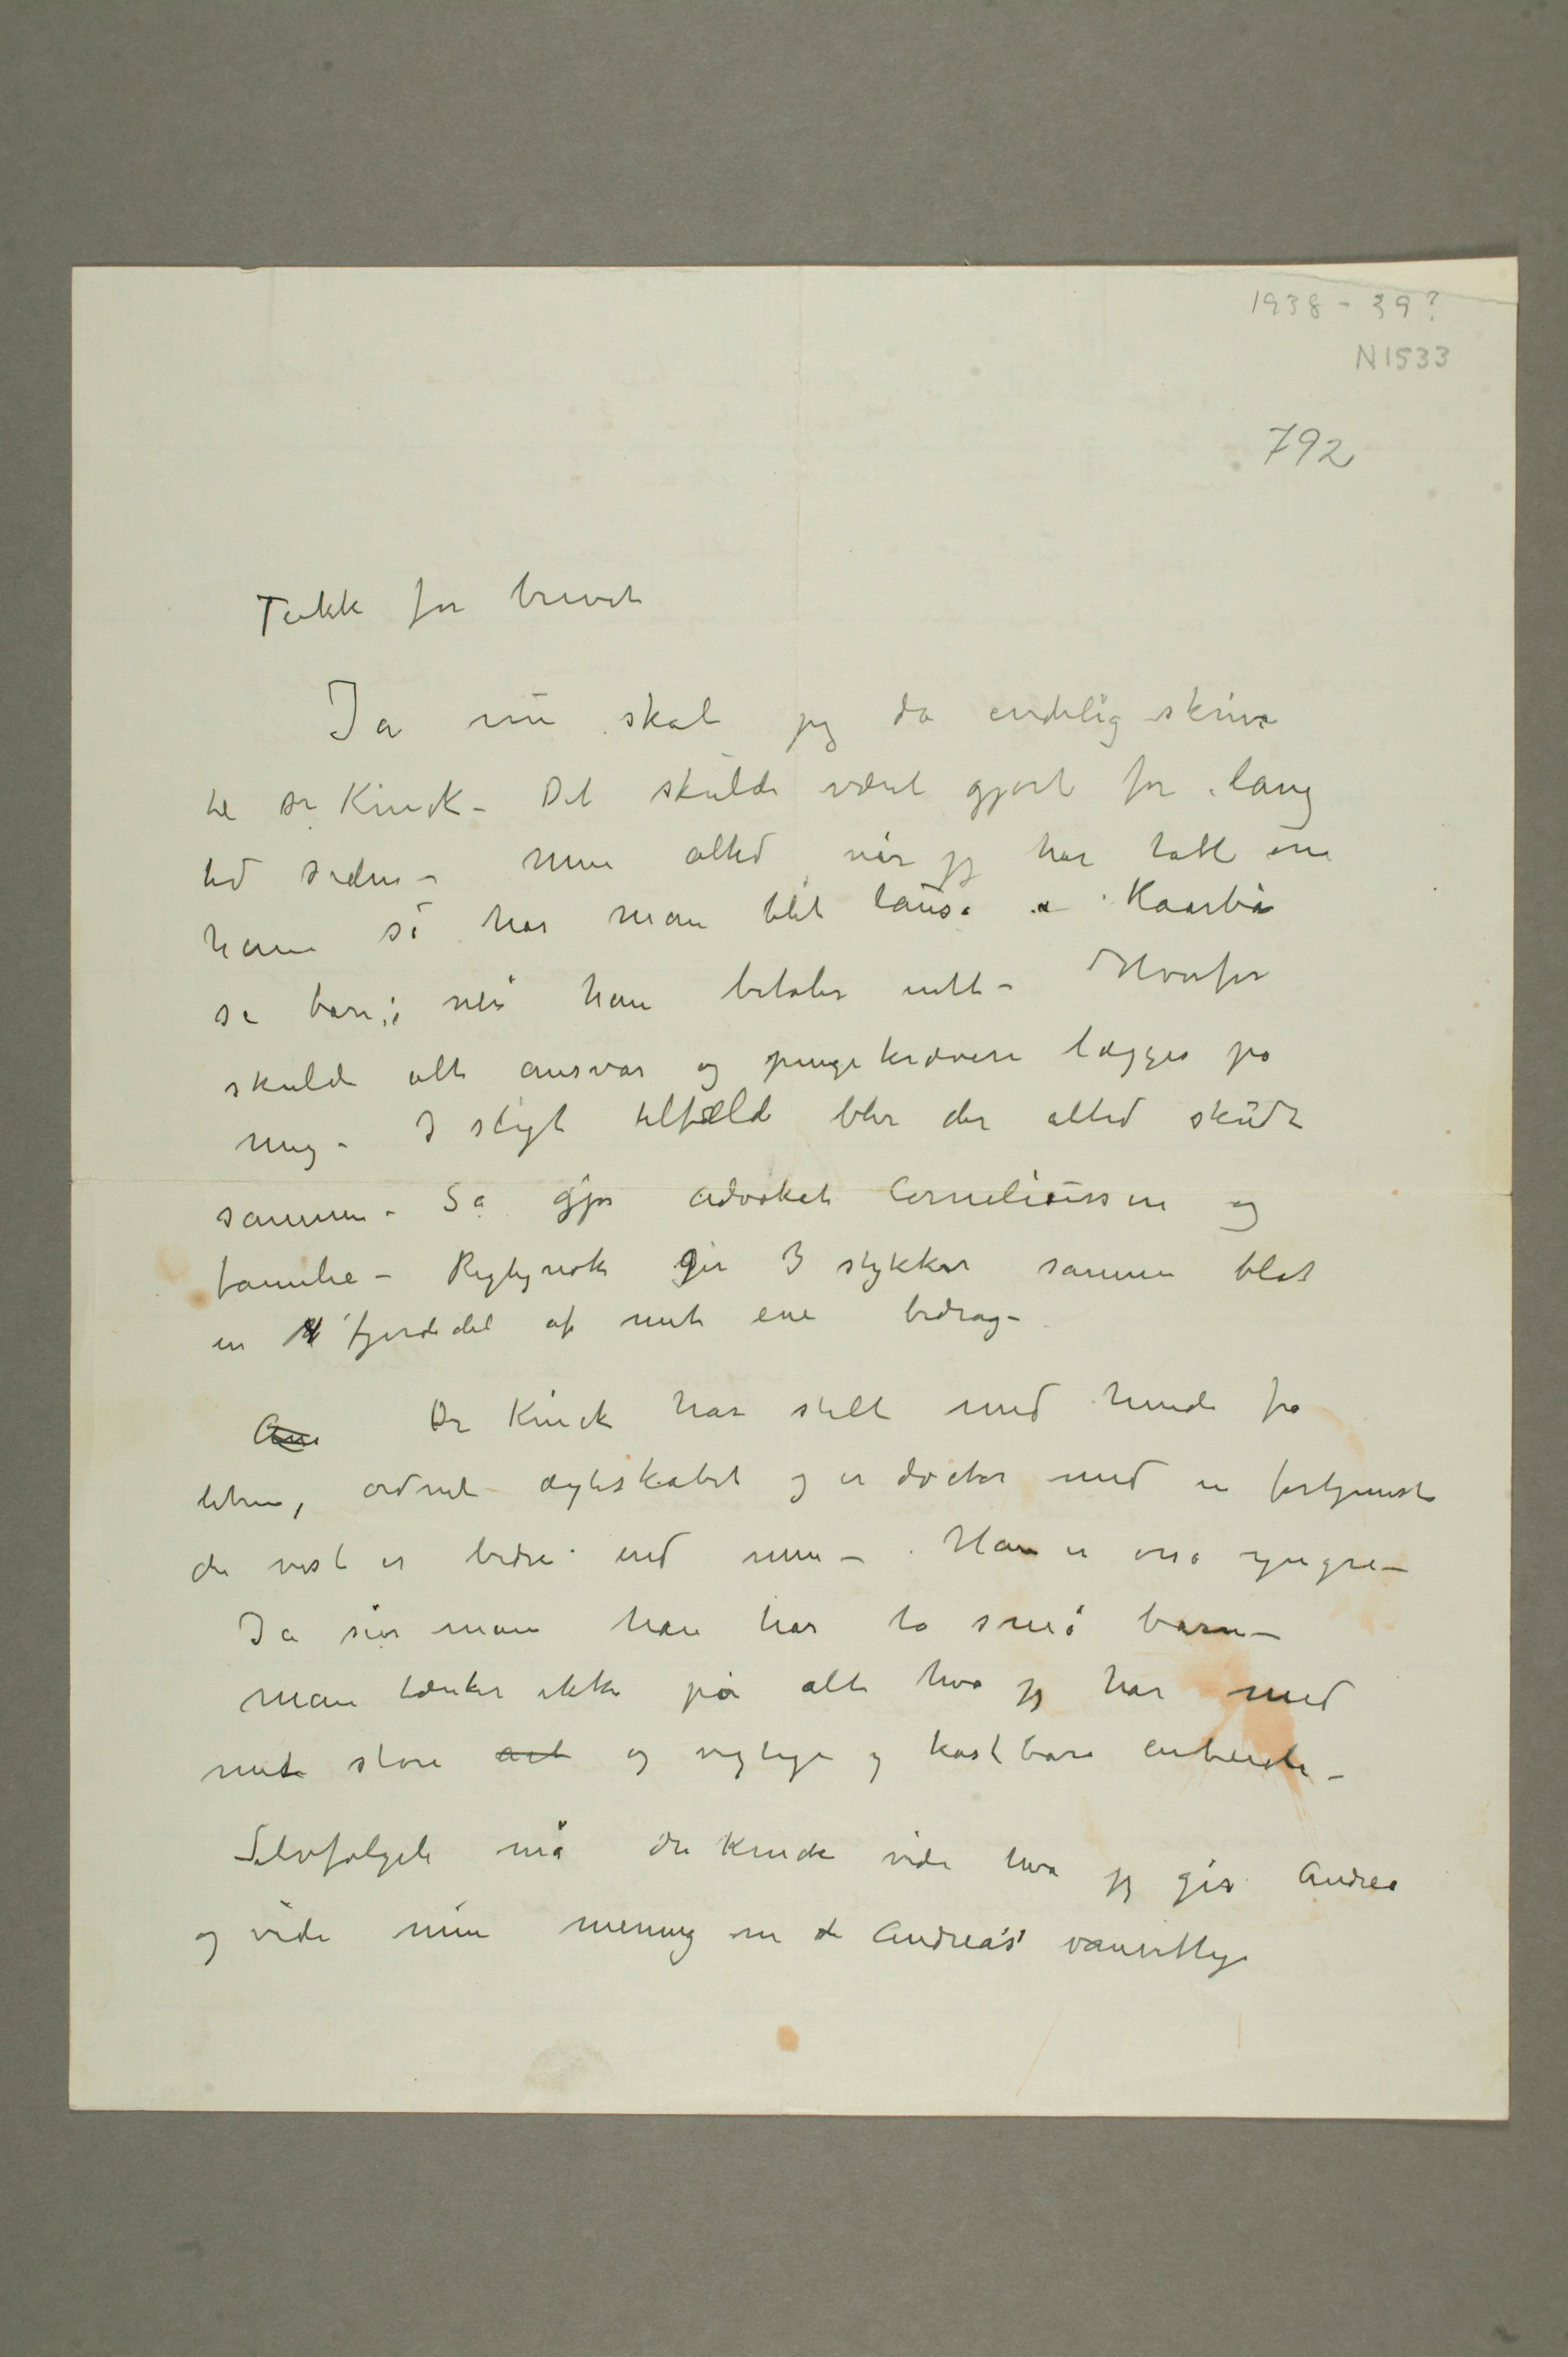 1938 - 39?
N1533
792
Takk for brevet
Ja nu skal jeg da endelig skrive
til Dr Kinck – Det skulde været gjort for lang
tid siden – men altid når jeg har talt om
ham så har man blit taus. Kaarbø
sa bare: nei han betaler intt – Hvorfor
skulde alt ansvar og pengekravene lægges på
mig – I sligt tilfælde blir der altid skudt
sammen – Så gjør advokat Corneliussen og
familie – Rigtignok gir 3 stykker sammen blot
en 4 fjerdedel af mit ene bidrag –
An Dr Kinck har stelt med hende fra
liten, ordnet ægteskabet og er doctor med en fortjeneste
der vist er bedre end min – Han er osså yngre –
Ja sier man han har to små barn –
man tænker ikke på alt hva jeg har med
mit store art og vigtige og kostbare arbeide –
Selvfølgeli må Dr Kinck vide hva jeg gir Andrea
og vide min mening om de Andreas' vanvittige